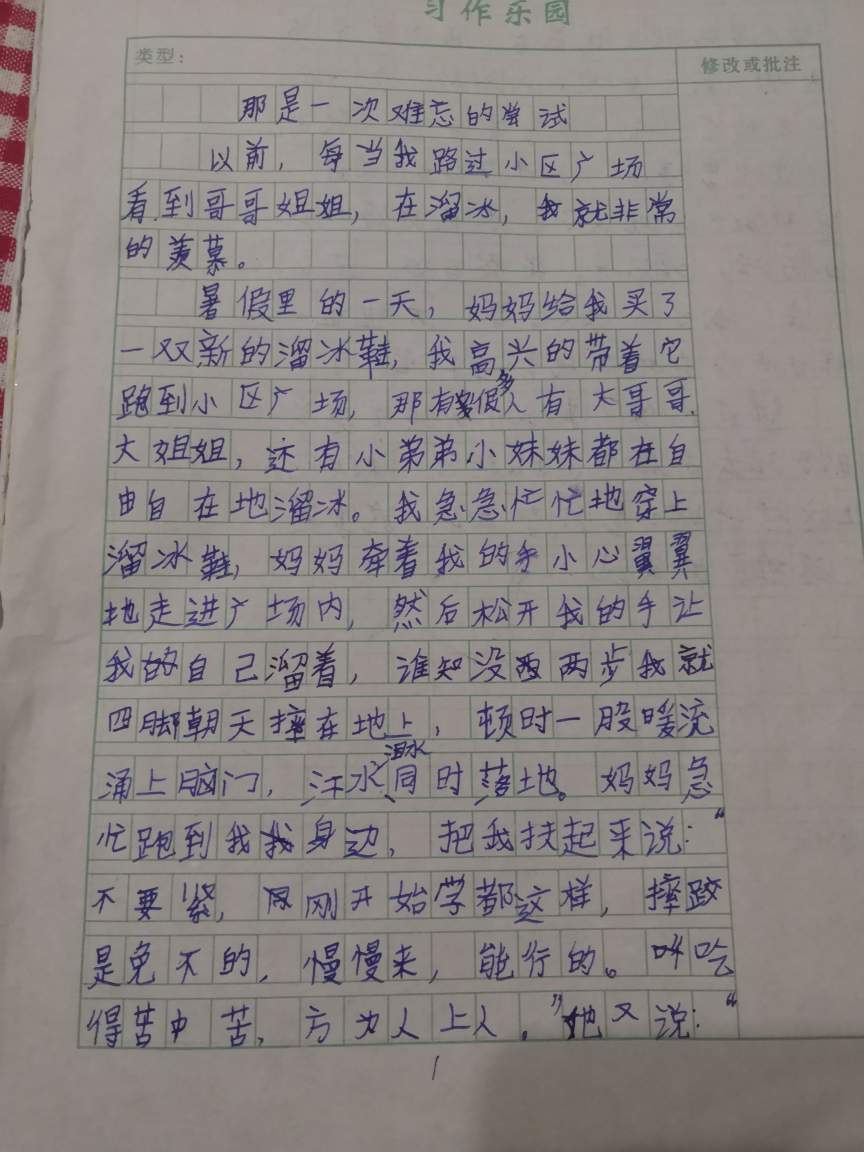 习作乐园
类型：
修改或批注
那是一次难忘的尝试
以前，每当我路过小区广场
看到哥哥姐姐，在溜冰，我就非常
的羡慕。
暑假里的一天，妈妈给我买了
一双新的溜冰鞋，我高兴的带着它
跑到小区广场，那有很多人有大哥哥
大姐姐，还有小弟弟小妹妹都在自
由自在地溜冰。我急急忙忙地穿上
溜冰鞋，妈妈牵着我的手小心翼翼
地走进广场内，然后松开我的手让
我自己溜着，谁知没两步我就
四脚朝天摔在地上，顿时一股暖流
涌上脑门，汗水泪水同时落地。妈妈急
忙跑到我身边，把我扶起来说：“
不要紧，刚开始学都这样，摔跤
是免不的，慢慢来，能行的。叫吃
得苦中苦，方为人上人。”她又说：“
1